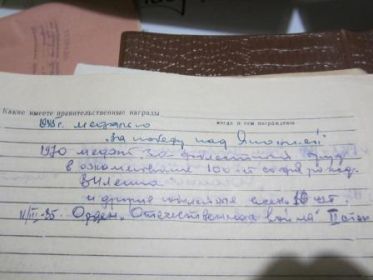 Какие имеете правительственные награды
когда и чем награждены
1946г. медалью
"за победу над Японией"
1970 медаль за доблестный труд
в ознаменование 100-л со дня рожд.
В.И. Ленина
и другие юбилейные
11/III-85. Орден "Отечественная война" II степ